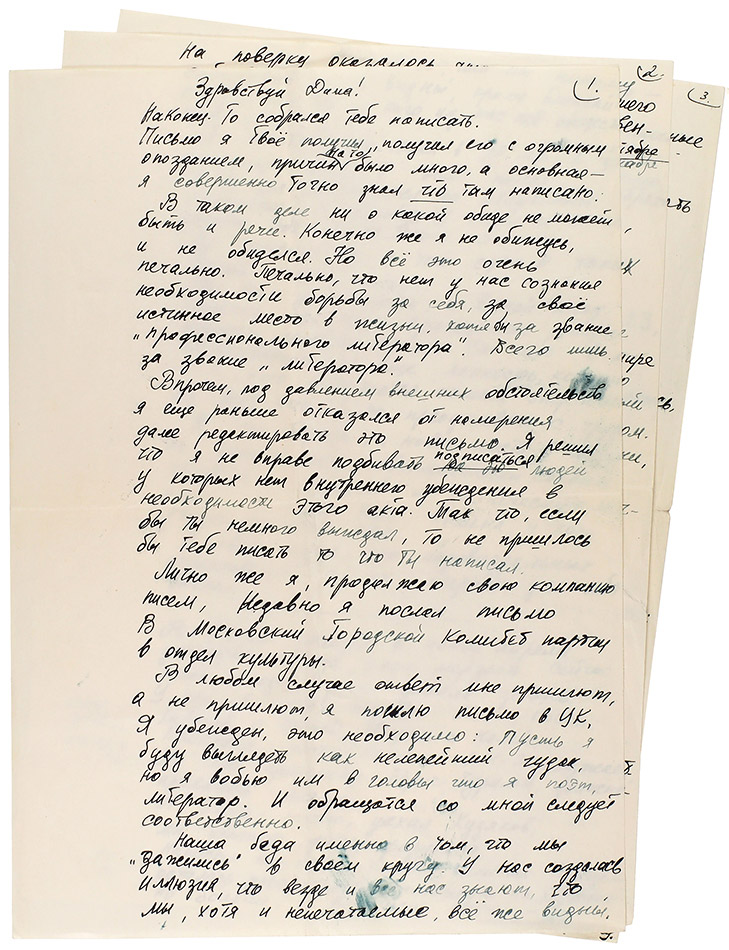 На поверку оказалось
1.
2.
3.
Здравствуй Дима!
Наконец-то собрался тебе написать.
Письмо я твоё получил, получил его с огромным
опозданием, причин на то было много, а основная —
я совершенно точно знал что там написано.
В таком деле ни о какой обиде не может
быть и речи. Конечно же я не обижусь,
и не обиделся. Но всё это очень
печально. Печально, что нет у нас сознания
необходимости борьбы за себя, за своё
истинное место в жизни, хотя бы за звание
„профессионального литератора". Всего лишь
за звание „литератора".
Впрочем, под давлением внешних обстоятельств
я еще раньше отказался от намерения
даже редактировать это письмо. Я решил
что я не вправе подбивать подписаться людей
у которых нет внутреннего убеждения в
необходимости этого акта. Так что, если
бы ты немного выждал, то не пришлось
бы тебе писать то что ты написал.
Лично же я, продолжаю свою компанию
писем, Недавно я послал письмо
В Московский Городской Комитет партии
в отдел культуры.
В любом случае ответ мне пришлют,
а не пришлют, я пошлю письмо в ЦК,
Я убежден, это необходимо: Пусть я
буду выглядеть как нелепейший чудак,
но я вобью им в головы что я поэт,
литератор. И обращатся со мной следует
соответственно.
Наша беда именно в том, что мы
„зажились" в своём кругу. У нас создалась
иллюзия, что везде и все нас знают, что
мы, хотя и непечатаемые, всё же видны,